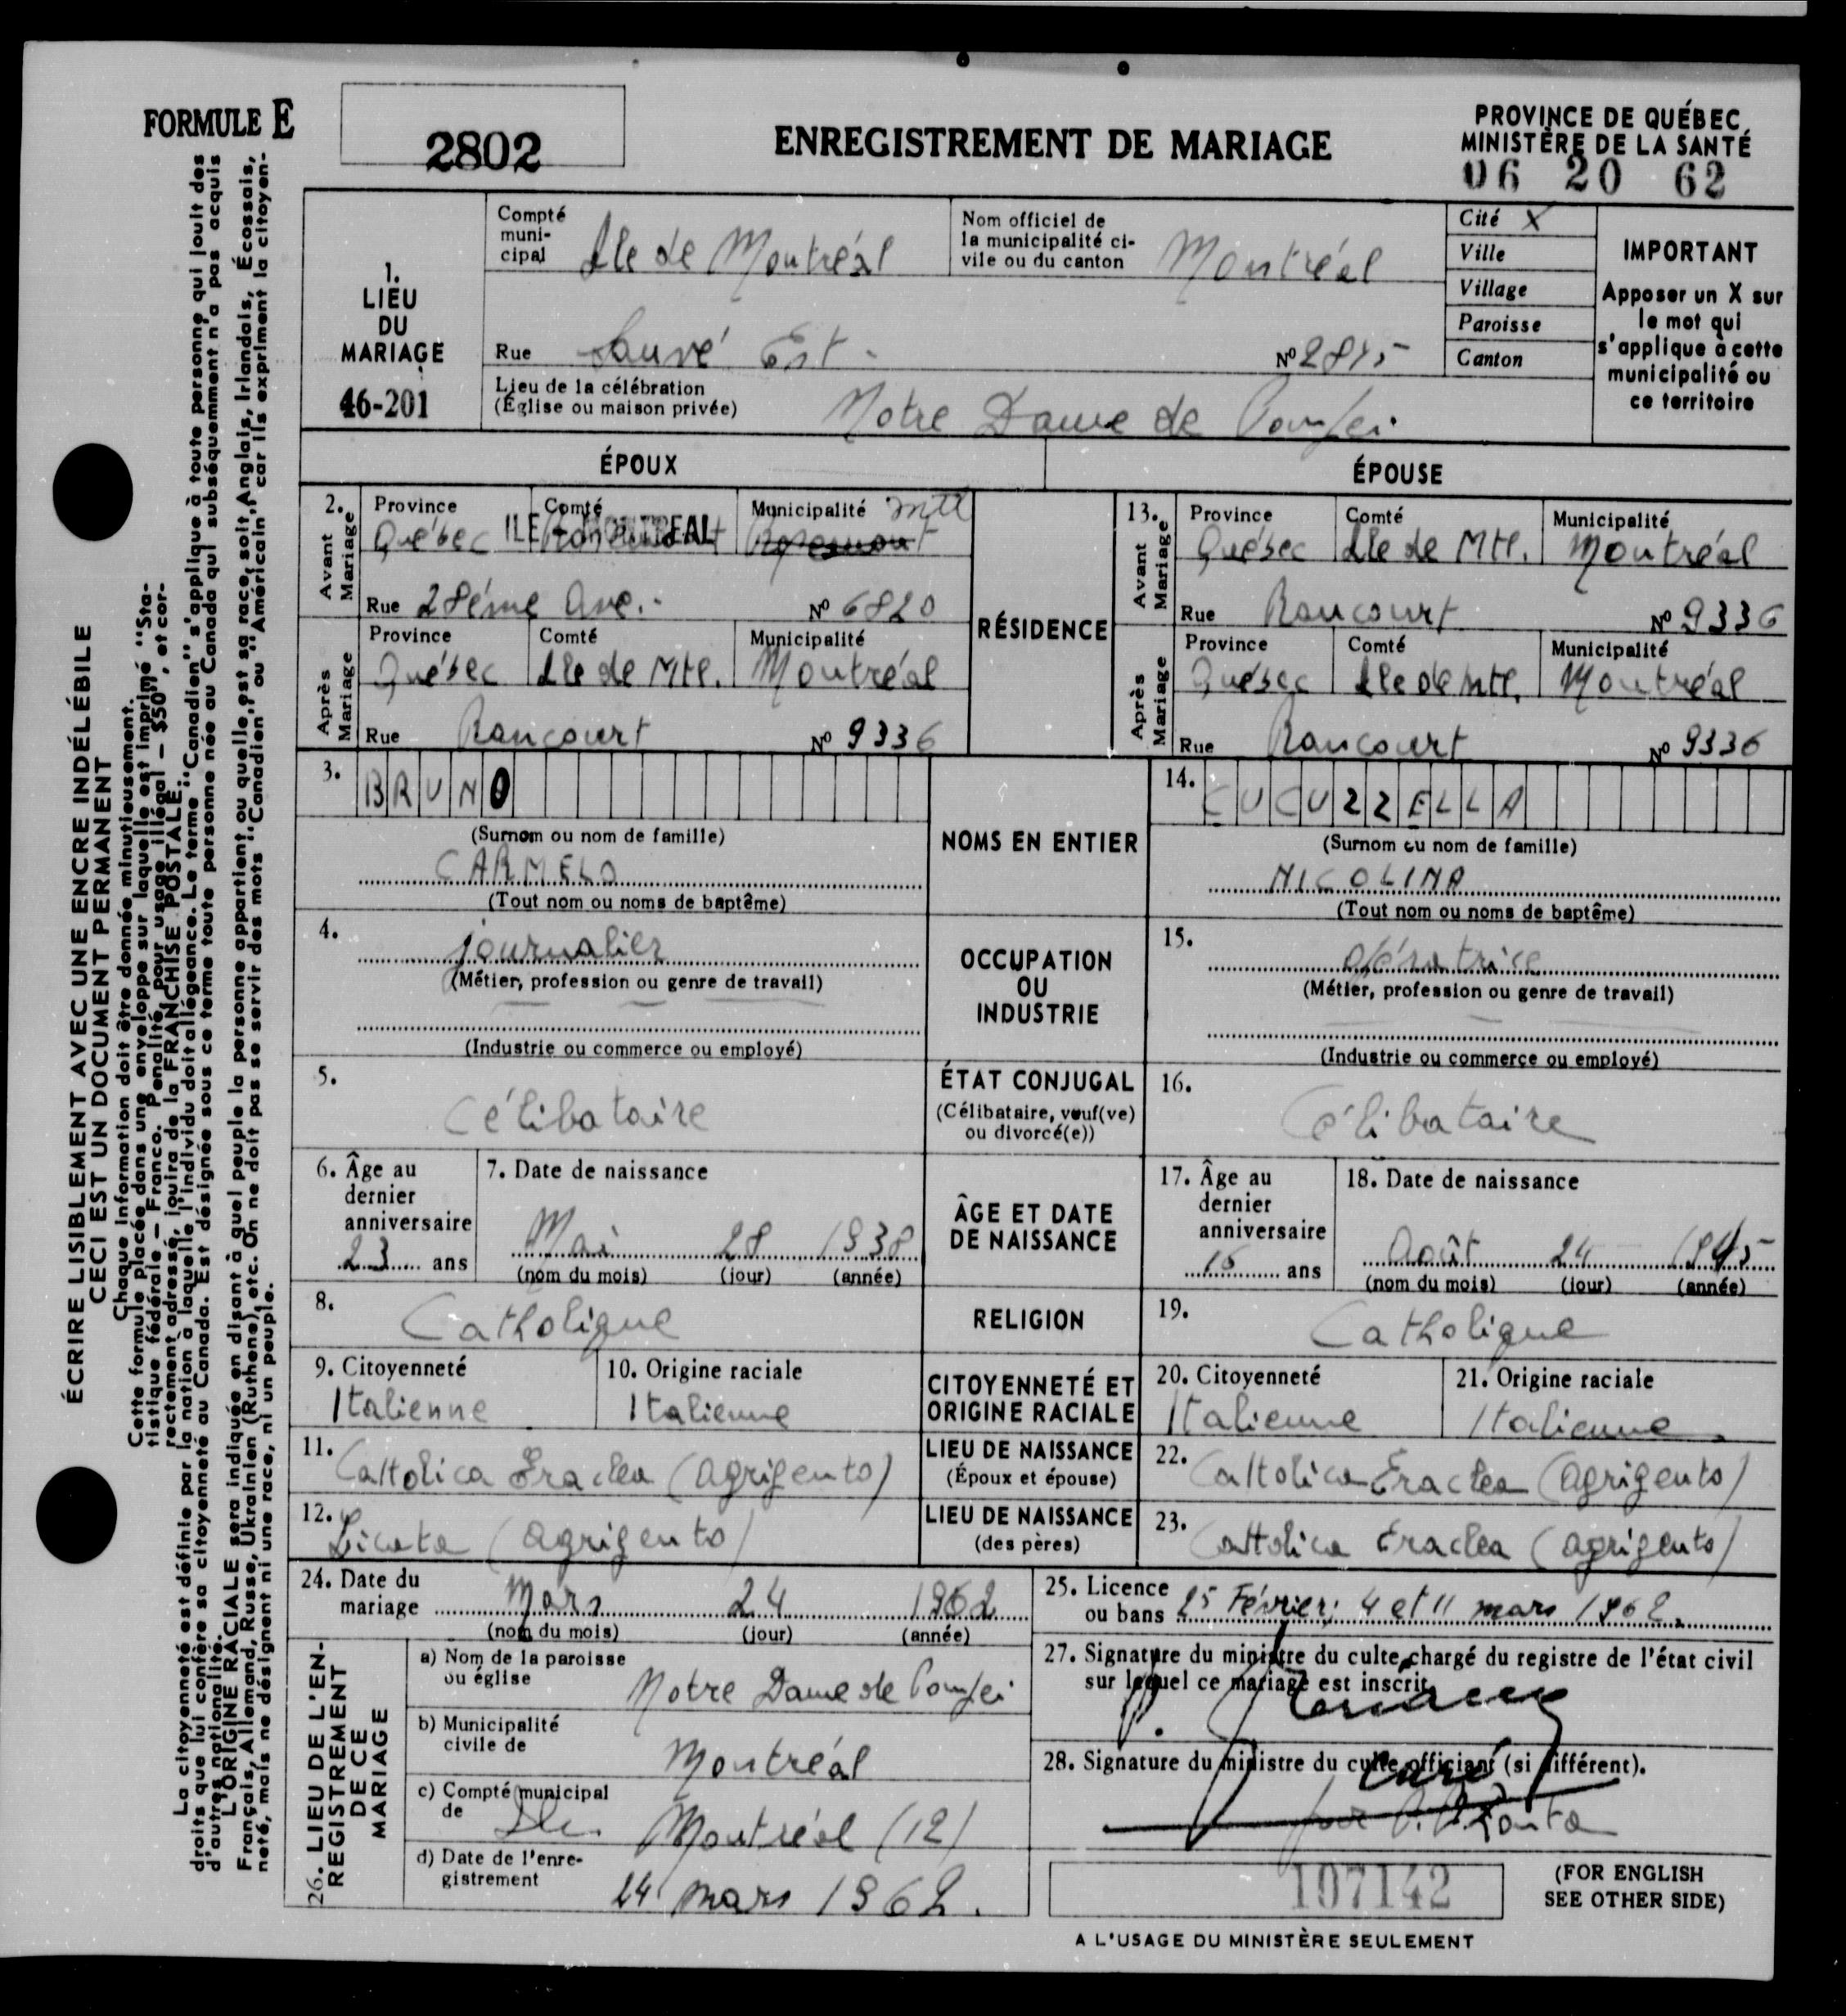 FORMULE E
2802
ENREGISTREMENT DE MARIAGE
PROVINCE DE QUÉBEC
MINISTÈRE DE LA SANTÉ
06 20 62
ÉCRIRE LISIBLEMENT AVEC UNE ENCRE INDÉLÉBILE
CECI EST UN DOCUMENT PERMANENT
Chaque information doit être donnée minutieusement.
Cette formule placée dans une enveloppe sur laquelle est imprimé "Sta-
tistique fédérale – Franco. Penalité pour usage illégal – $50", et cor-
rectement adressé, jouira de la FRANCHISE POSTALE.
La citoyenneté est définie par la nation à laquelle l'individu doit allégeance. Le terme "Canadien" s'applique à toute personne qui jouit des
droits que lui confère sa citoyenneté au Canada. Est désignée sous ce terme toute personne née au Canada qui subséquemment n'a pas acquis
d'autres nationalité.
L'ORIGINE RACIALE sera indiquée en disant à quel peuple la personne appartient ou quelle est sa race, soit Anglais, Irlandais, Écossais,
Français, Allemand, Russe, Ukrainien (Ruthene), etc. On ne doit pas se servir des mots "Canadien" ou "Américain" car ils expriment la citoyen-
neté, mais ne désignent ni une race, ni un peuple.
1.
LIEU
DU
MARIAGE
46-201
Compté
muni-
cipal
Ile de Montréal
Nom officiel de
la municipalité ci-
vile ou du canton
Montréal
Cité X
Ville
Village
Paroisse
Canton
IMPORTANT
Apposer un X sur
le mot qui
s'applique à cette
municipalité ou
ce territoire
Rue Sauvé Est. No 2875
Lieu de la célébration
(Église ou maison privée)
Notre Dame de Pompei
ÉPOUX
ÉPOUSE
2.
Avant
Mariage
Province Comté Municipalité Mtl
Québec ILE - MONTREAL Rosemont
Rue 28éme Ave. No 6820
Après
Mariage
Province Comté Municipalité
Québec Ile de Mtl. Montréal
Rue Rancourt No 9336
RÉSIDENCE
13.
Avant
Mariage
Province Comté Municipalité
Québec Ile de Mtl. Montréal
Rue Rancourt No 9336
Après
Mariage
Province Comté Municipalité
Québec Ile de Mtl. Montréal
Rue Rancourt No 9336
3. BRUNO
(Surnom ou nom de famille)
CARMELO
(Tout nom ou noms de baptême)
NOMS EN ENTIER
14. CUCUZZELLA
(Surnom ou nom de famille)
NICOLINA
(Tout nom ou noms de baptême)
4. journalier
(Métier, profession ou genre de travail)
(Industrie ou commerce ou employé)
OCCUPATION
OU
INDUSTRIE
15. opératrice
(Métier, profession ou genre de travail)
(Industrie ou commerce ou employé)
5. Célibataire
ÉTAT CONJUGAL
(Célibataire, veuf(ve)
ou divorcé(e))
16. Célibataire
6. Âge au
dernier
anniversaire
23 ans
7. Date de naissance
Mai 28 1938
(nom du mois) (jour) (année)
ÂGE ET DATE
DE NAISSANCE
17. Âge au
dernier
anniversaire
16 ans
18. Date de naissance
Août 24 1945
(nom du mois) (jour) (année)
8. Catholique
RELIGION
19. Catholique
9. Citoyenneté
Italienne
10. Origine raciale
Italienne
CITOYENNETÉ ET
ORIGINE RACIALE
20. Citoyenneté
Italienne
21. Origine raciale
Italienne
11. Cattolica Eraclea (Agrigento)
LIEU DE NAISSANCE
(Époux et épouse)
22. Cattolica Eraclea (Agrigento)
12. Licata (Agrigento)
LIEU DE NAISSANCE
(des pères)
23. Cattolica Eraclea (Agrigento)
24. Date du
mariage Mars 24 1962
(nom du mois) (jour) (année)
25. Licence
ou bans 25 Février; 4 et 11 mars 1962.
26. LIEU DE L'EN-
REGISTREMENT
DE CE
MARIAGE
a) Nom de la paroisse
ou église
Notre Dame de Pompei
b) Municipalité
civile de
Montréal
c) Compté municipal
de Ile. Montréal (12)
d) Date de l'enre-
gistrement
24 mars 1962.
27. Signature du ministre du culte chargé du registre de l'état civil
sur lequel ce mariage est inscrit
28. Signature du ministre du culte officiant (si différent).
curé
107142
(FOR ENGLISH
SEE OTHER SIDE)
A L'USAGE DU MINISTÈRE SEULEMENT